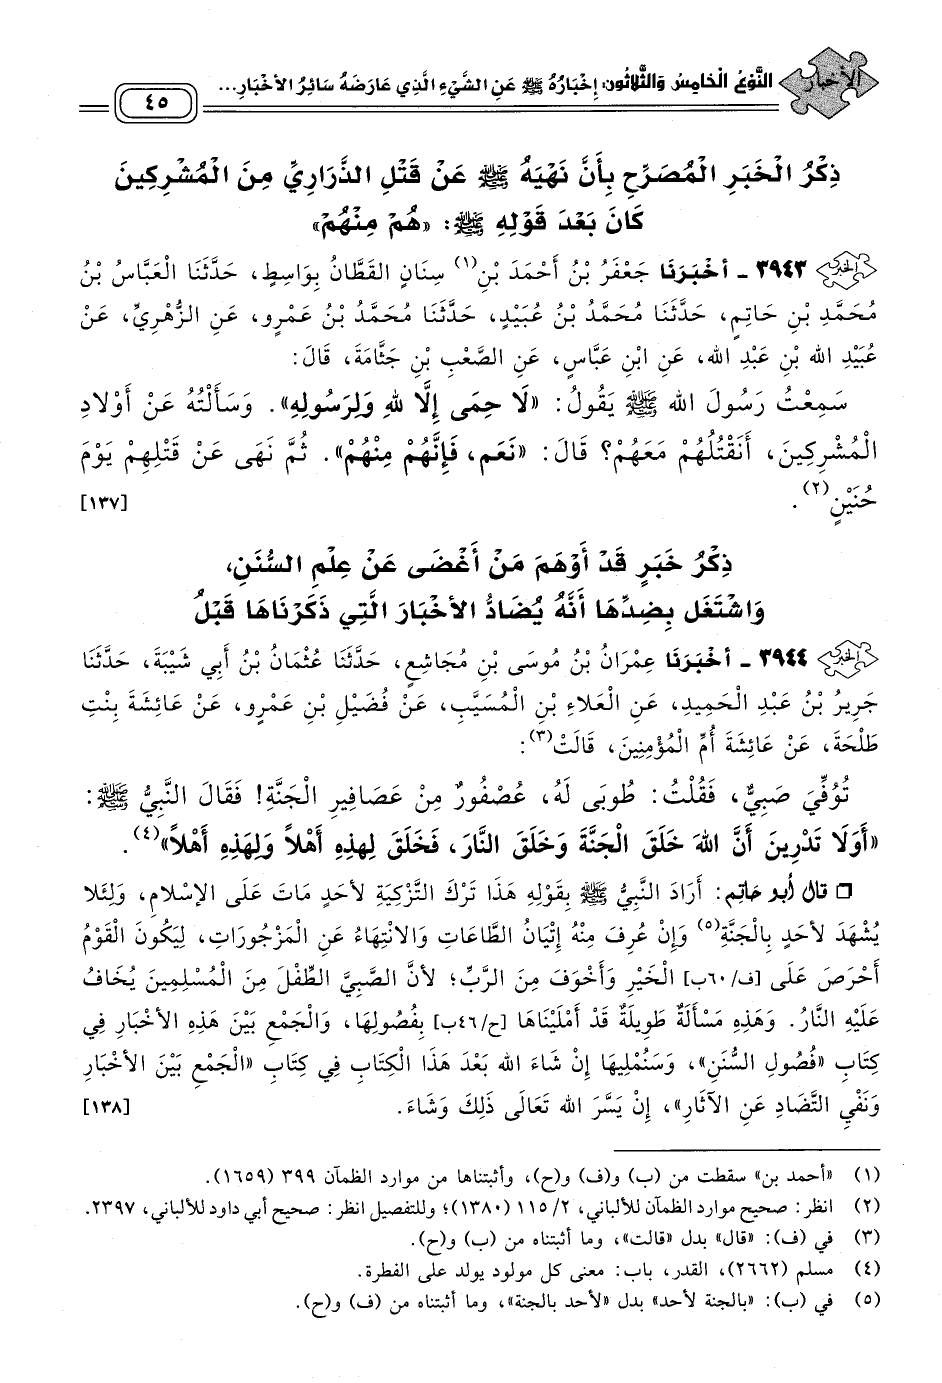 الأخبار
النَّوْعُ الْخَامِسُ وَالثَّلَاثُونَ: إِخْبَارُهُ ﷺ عَنِ الشَّيْءِ الَّذِي عَارَضَهُ سَائِرُ الأَخْبَارِ...
٤٥
ذِكْرُ الْخَبَرِ الْمُصَرِّحِ بِأَنَّ نَهْيَهُ ﷺ عَنْ قَتْلِ الذَّرَارِيِّ مِنَ الْمُشْرِكِينَ
كَانَ بَعْدَ قَوْلِهِ ﷺ: «هُمْ مِنْهُمْ»
٣٩٤٣ - أَخْبَرَنَا جَعْفَرُ بْنُ أَحْمَدَ بْنِ(١) سِنَانٍ القَطَّانُ بِوَاسِطٍ، حَدَّثَنَا الْعَبَّاسُ بْنُ
مُحَمَّدِ بْنِ حَاتِمٍ، حَدَّثَنَا مُحَمَّدُ بْنُ عُبَيْدٍ، حَدَّثَنَا مُحَمَّدُ بْنُ عَمْرٍو، عَنِ الزُّهْرِيِّ، عَنْ
عُبَيْدِ الله بْنِ عَبْدِ الله، عَنِ ابْنِ عَبَّاسٍ، عَنِ الصَّعْبِ بْنِ جَثَّامَةَ، قَالَ:
سَمِعْتُ رَسُولَ الله ﷺ يَقُولُ: «لَا حِمَى إِلَّا لِلهِ وَلِرَسُولِهِ». وَسَأَلْتُهُ عَنْ أَوْلَادِ
الْمُشْرِكِينَ، أَنَقْتُلُهُمْ مَعَهُمْ؟ قَالَ: «نَعَم، فَإِنَّهُمْ مِنْهُمْ». ثُمَّ نَهَى عَنْ قَتْلِهِمْ يَوْمَ
حُنَيْنٍ(٢). [١٣٧]
ذِكْرُ خَبَرٍ قَدْ أَوْهَمَ مَنْ أَغْضَى عَنْ عِلْمِ السُّنَنِ،
وَاشْتَغَلَ بِضِدِّهَا أَنَّهُ يُضَادُّ الأَخْبَارَ الَّتِي ذَكَرْنَاهَا قَبْلُ
٣٩٤٤ - أَخْبَرَنَا عِمْرَانُ بْنُ مُوسَى بْنِ مُجَاشِعٍ، حَدَّثَنَا عُثْمَانُ بْنُ أَبِي شَيْبَةَ، حَدَّثَنَا
جَرِيرُ بْنُ عَبْدِ الْحَمِيدِ، عَنِ الْعَلَاءِ بْنِ الْمُسَيَّبِ، عَنْ فُضَيْلِ بْنِ عَمْرٍو، عَنْ عَائِشَةَ بِنْتِ
طَلْحَةَ، عَنْ عَائِشَةَ أُمِّ الْمُؤْمِنِينَ، قَالَتْ(٣):
تُوُفِّيَ صَبِيٌّ، فَقُلْتُ: طُوبَى لَهُ، عُصْفُورٌ مِنْ عَصَافِيرِ الْجَنَّةِ! فَقَالَ النَّبِيُّ ﷺ:
«أَوَلَا تَدْرِينَ أَنَّ اللهَ خَلَقَ الْجَنَّةَ وَخَلَقَ النَّارَ، فَخَلَقَ لِهذِهِ أَهْلاً وَلِهَذِهِ أَهْلاً»(٤).
□ قال أبو حاتم: أَرَادَ النَّبِيُّ ﷺ بِقَوْلِهِ هَذَا تَرْكَ التَّزْكِيَةِ لأَحَدٍ مَاتَ عَلَى الإِسْلَامِ، وَلِئَلا
يُشْهَدَ لأَحَدٍ بِالْجَنَّةِ(٥) وَإِنْ عُرِفَ مِنْهُ إِتْيَانُ الطَّاعَاتِ وَالانْتِهَاءُ عَنِ الْمَزْجُورَاتِ، لِيَكُونَ الْقَوْمُ
أَحْرَصَ عَلَى [ف/٦٠ب] الْخَيْرِ وَأَخْوَفَ مِنَ الرَّبِّ؛ لأَنَّ الصَّبِيَّ الطِّفْلَ مِنَ الْمُسْلِمِينَ يُخَافُ
عَلَيْهِ النَّارُ. وَهَذِهِ مَسْأَلَةٌ طَوِيلَةٌ قَدْ أَمْلَيْنَاهَا [ح/٤٦ب] بِفُصُولِهَا، وَالْجَمْعِ بَيْنَ هَذِهِ الأَخْبَارِ فِي
كِتَابِ «فُصُولِ السُّنَنِ»، وَسَنُمْلِيهَا إِنْ شَاءَ الله بَعْدَ هَذَا الْكِتَابِ فِي كِتَابِ «الْجَمْعِ بَيْنَ الأَخْبَارِ
وَنَفْيِ التَّضَادِ عَنِ الآثَارِ»، إِنْ يَسَّرَ الله تَعَالَى ذَلِكَ وَشَاءَ. [١٣٨]
(١) «أحمد بن» سقطت من (ب) و(ف) و(ح)، وأثبتناها من موارد الظمآن ٣٩٩ (١٦٥٩).
(٢) انظر: صحيح موارد الظمآن للألباني، ٢/ ١١٥ (١٣٨٠)؛ وللتفصيل انظر: صحيح أبي داود للألباني، ٢٣٩٧.
(٣) في (ف): «قال» بدل «قالت»، وما أثبتناه من (ب) و(ح).
(٤) مسلم (٢٦٦٢)، القدر، باب: معنى كل مولود يولد على الفطرة.
(٥) في (ب): «بالجنة لأحد» بدل «لأحد بالجنة»، وما أثبتناه من (ف) و(ح).